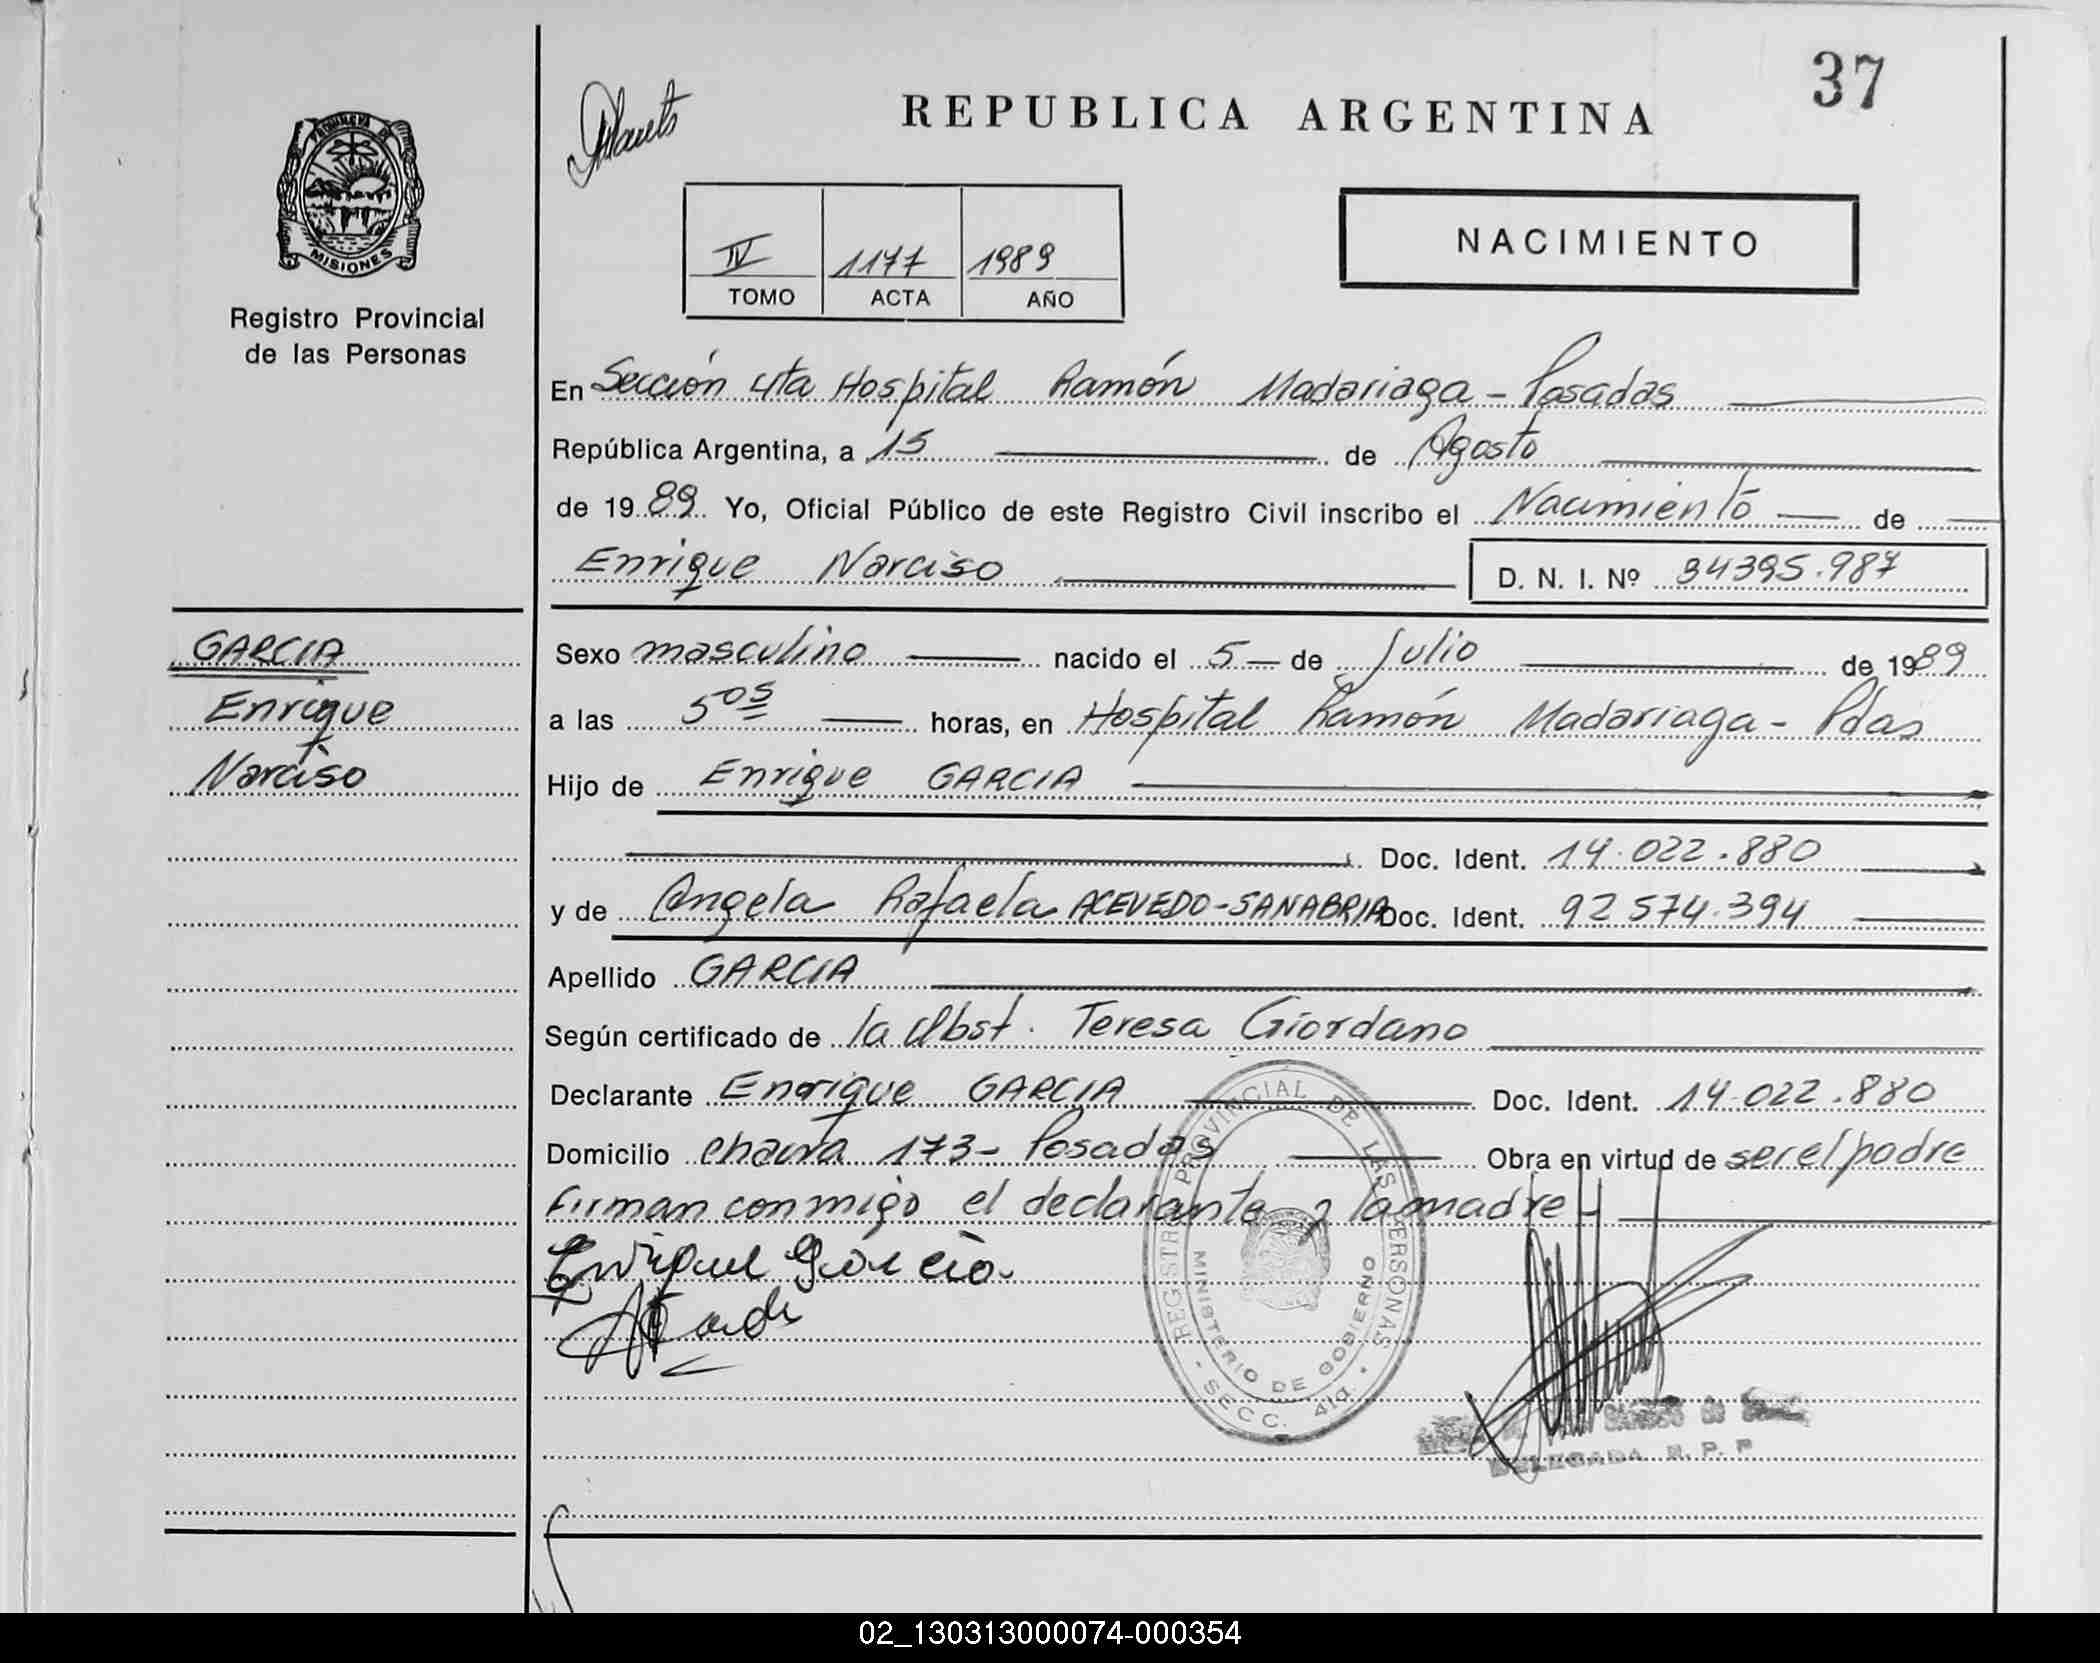 37
REPUBLICA ARGENTINA
PROVINCIA DE
MISIONES
Registro Provincial
de las Personas
IV 1177 1989
TOMO ACTA AÑO
NACIMIENTO
En Sección 4ta Hospital Ramón Madariaga - Posadas
República Argentina, a 15 de Agosto
de 1989. Yo, Oficial Público de este Registro Civil inscribo el Nacimiento de
Enrique Narciso D. N. I. Nº 34395.987
GARCIA
Enrique
Narciso
Sexo masculino nacido el 5 de Julio de 1989
a las 5 05 horas, en Hospital Ramón Madariaga - Pdas
Hijo de Enrique GARCIA
Doc. Ident. 14.022.880
y de Angela Rafaela ACEVEDO-SANABRIA Doc. Ident. 92.574.394
Apellido GARCIA
Según certificado de la Obst. Teresa Giordano
Declarante Enrique GARCIA Doc. Ident. 14.022.880
Domicilio chacra 173 - Posadas Obra en virtud de ser el padre
Firman conmigo el declarante y la madre -
Enrique Garcia
REGISTRO PROVINCIAL DE LAS PERSONAS
MINISTERIO DE GOBIERNO
SECC. 4ta
DELEGADA R. P. P
02_130313000074-000354